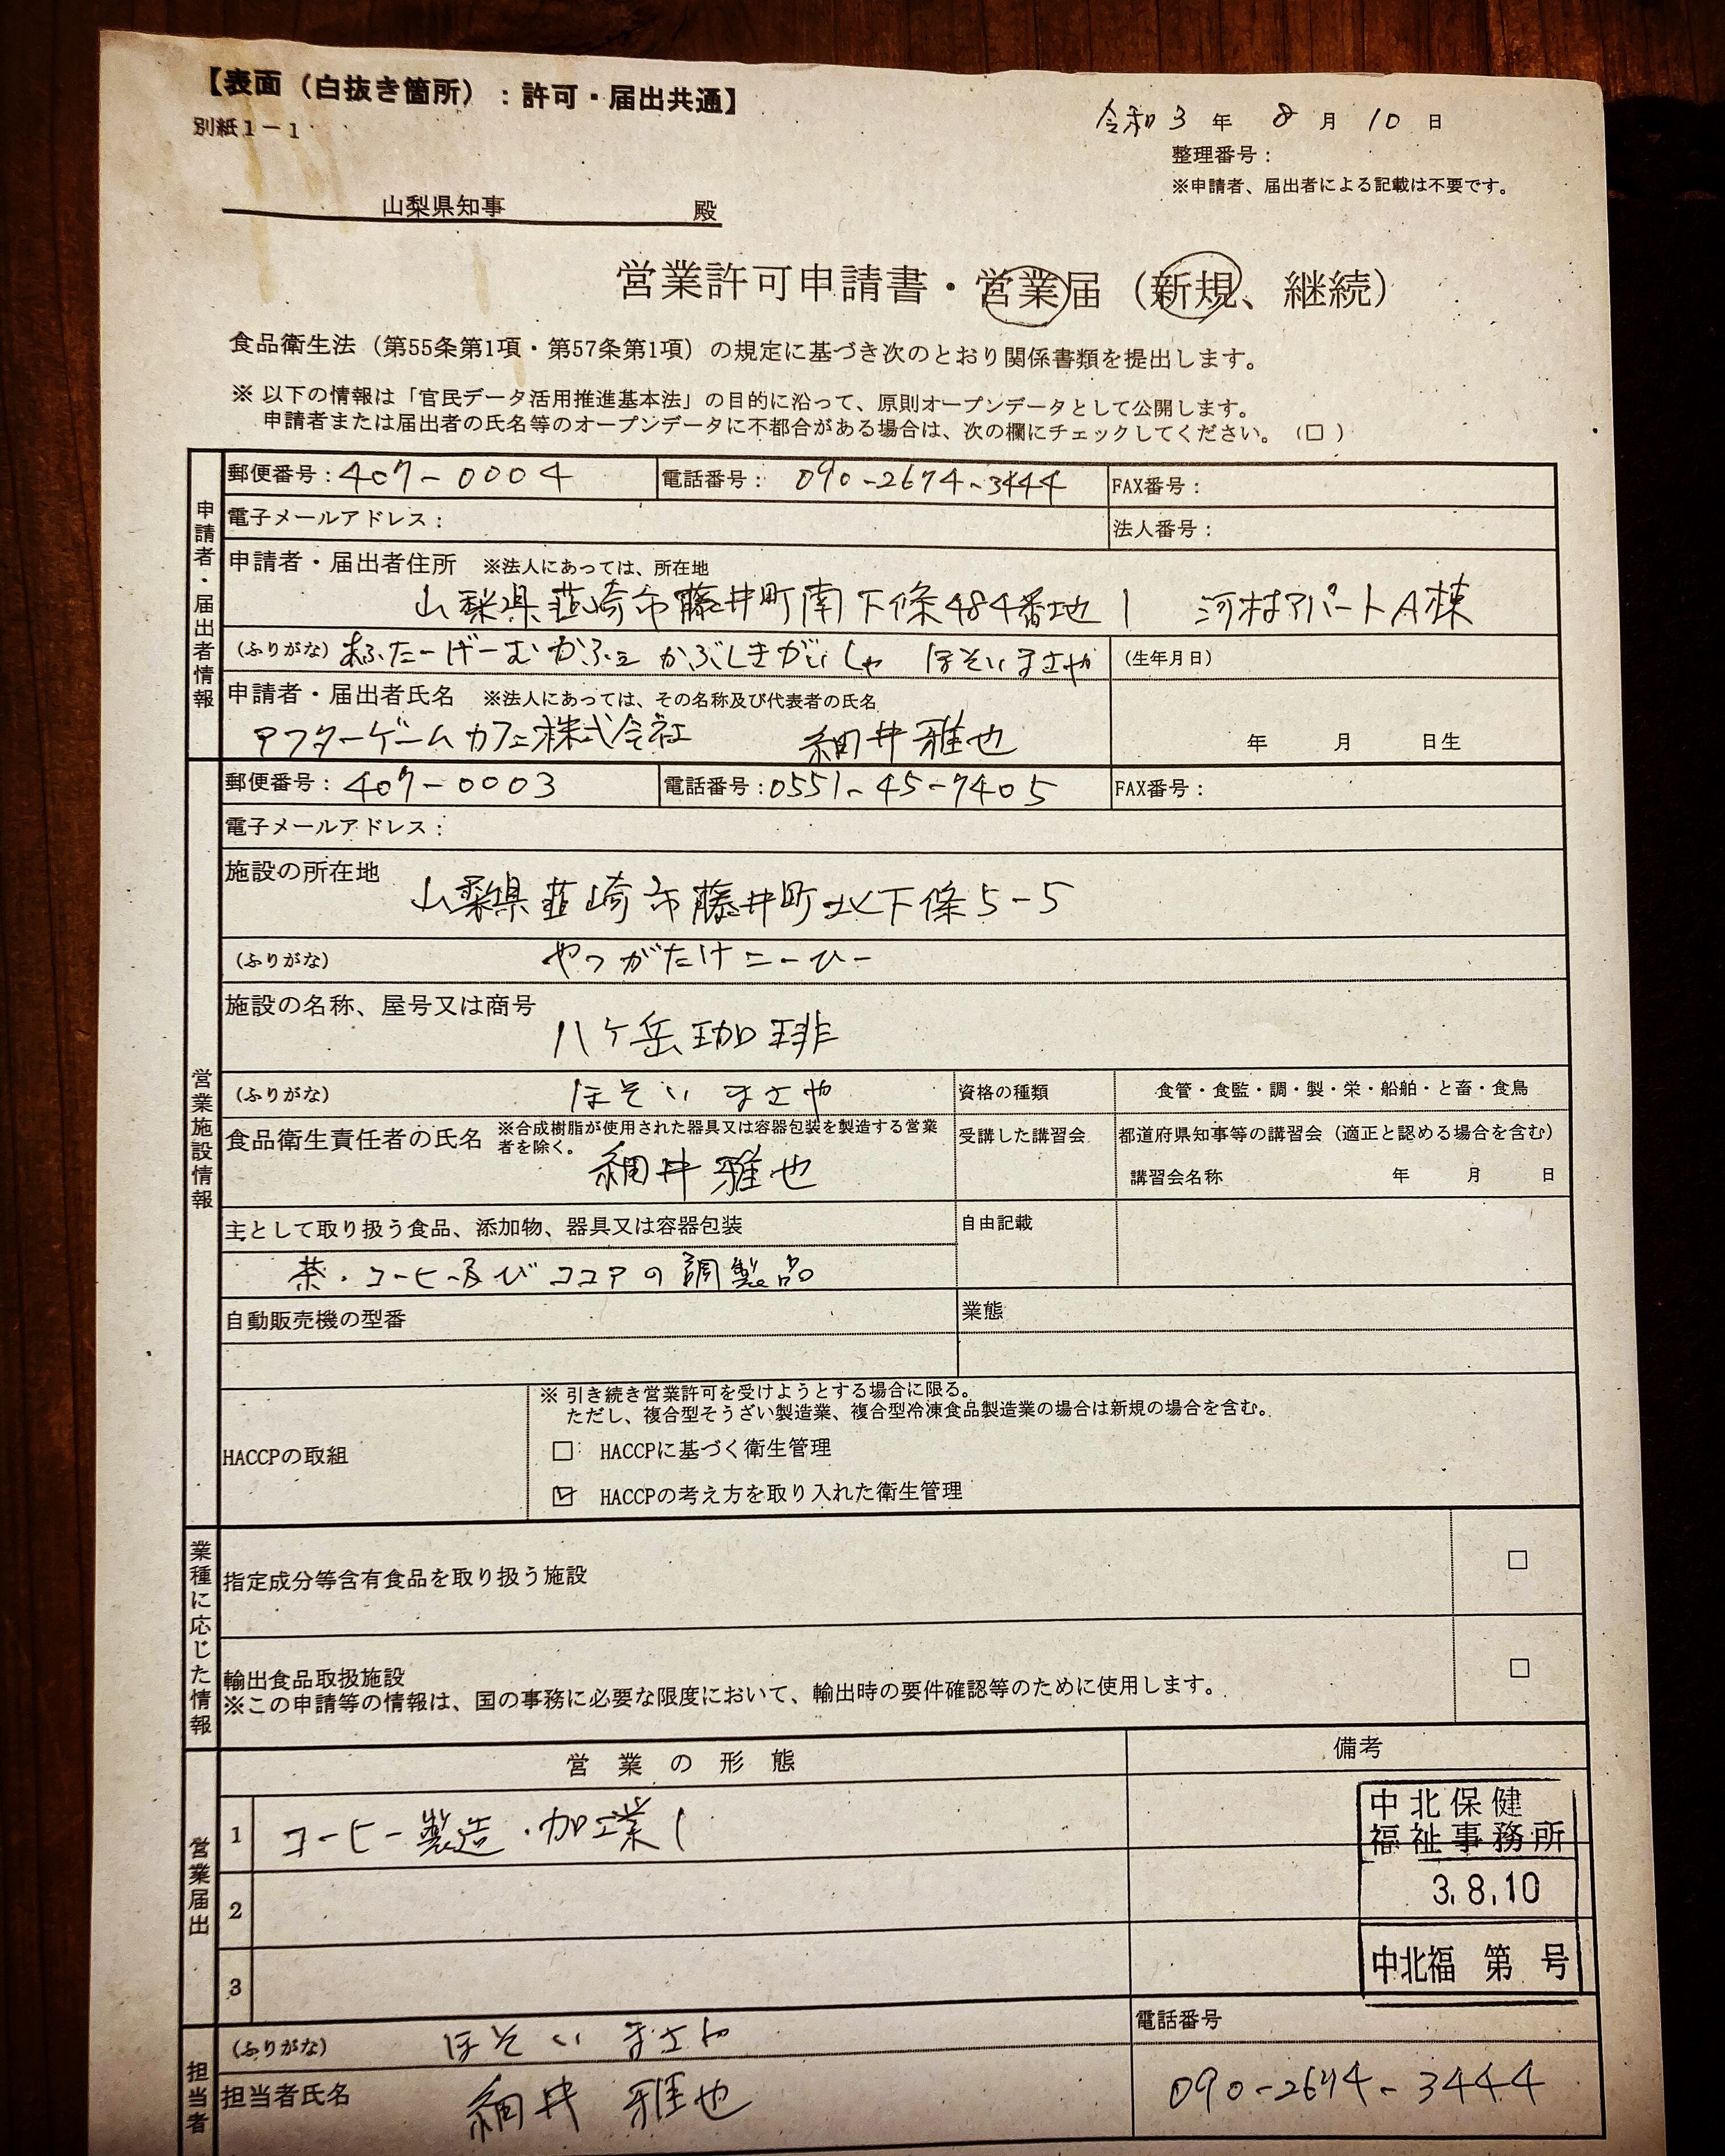 【表面（白抜き箇所）：許可・届出共通】
別紙１－１
令和 3 年 8 月 10 日
整理番号：
※申請者、届出者による記載は不要です。
山梨県知事 殿
営業許可申請書・営業届（新規、継続）
食品衛生法（第55条第1項・第57条第1項）の規定に基づき次のとおり関係書類を提出します。
※ 以下の情報は「官民データ活用推進基本法」の目的に沿って、原則オープンデータとして公開します。
申請者または届出者の氏名等のオープンデータに不都合がある場合は、次の欄にチェックしてください。（□ ）
申請者・届出者情報
郵便番号：407-0004 電話番号： 090-2674-3444 FAX番号：
電子メールアドレス： 法人番号：
申請者・届出者住所 ※法人にあっては、所在地
山梨県韮崎市藤井町南下條484番地1 河村アパートA棟
(ふりがな) あふたーげーむかふぇ かぶしきがいしゃ ほそいまさや (生年月日)
申請者・届出者氏名 ※法人にあっては、その名称及び代表者の氏名
アフターゲームカフェ株式会社 細井雅也 年 月 日生
営業施設情報
郵便番号：407-0003 電話番号：0551-45-7405 FAX番号：
電子メールアドレス：
施設の所在地
山梨県韮崎市藤井町北下條5-5
(ふりがな) やつがたけこーひー
施設の名称、屋号又は商号
八ヶ岳珈琲
(ふりがな) ほそい まさや 資格の種類 食管・食監・調・製・栄・船舶・と畜・食鳥
食品衛生責任者の氏名 ※合成樹脂が使用された器具又は容器包装を製造する営業者を除く。 受講した講習会 都道府県知事等の講習会（適正と認める場合を含む）
細井 雅也 講習会名称 年 月 日
主として取り扱う食品、添加物、器具又は容器包装 自由記載
茶・コーヒー及びココアの調製品
自動販売機の型番 業態
HACCPの取組
※ 引き続き営業許可を受けようとする場合に限る。
ただし、複合型そうざい製造業、複合型冷凍食品製造業の場合は新規の場合を含む。
□ HACCPに基づく衛生管理
☑ HACCPの考え方を取り入れた衛生管理
業種に応じた情報
指定成分等含有食品を取り扱う施設 □
輸出食品取扱施設 □
※この申請等の情報は、国の事務に必要な限度において、輸出時の要件確認等のために使用します。
営業届出
営業の形態 備考
1 コーヒー製造・加工業
2
3
中北保健
福祉事務所
3.8.10
中北福 第 号
担当者
(ふりがな) ほそい まさや 電話番号
担当者氏名 細井 雅也 090-2674-3444